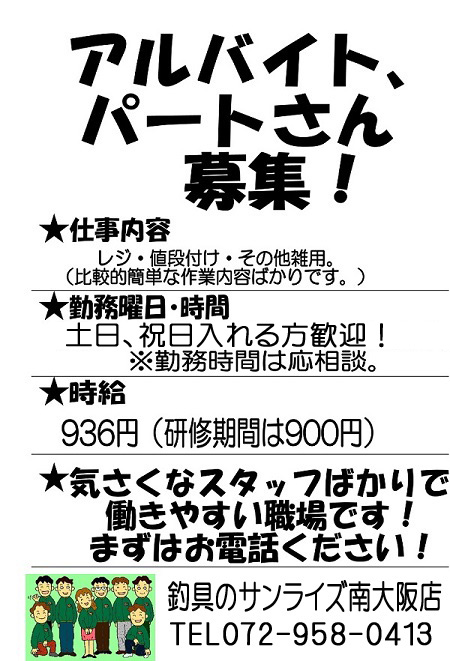 アルバイト、
パートさん
募集！
★仕事内容
レジ・値段付け・その他雑用。
（比較的簡単な作業内容ばかりです。）
★勤務曜日・時間
土日、祝日入れる方歓迎！
※勤務時間は応相談。
★時給
936円（研修期間は900円）
★気さくなスタッフばかりで
働きやすい職場です！
まずはお電話ください！
釣具のサンライズ南大阪店
TEL072-958-0413